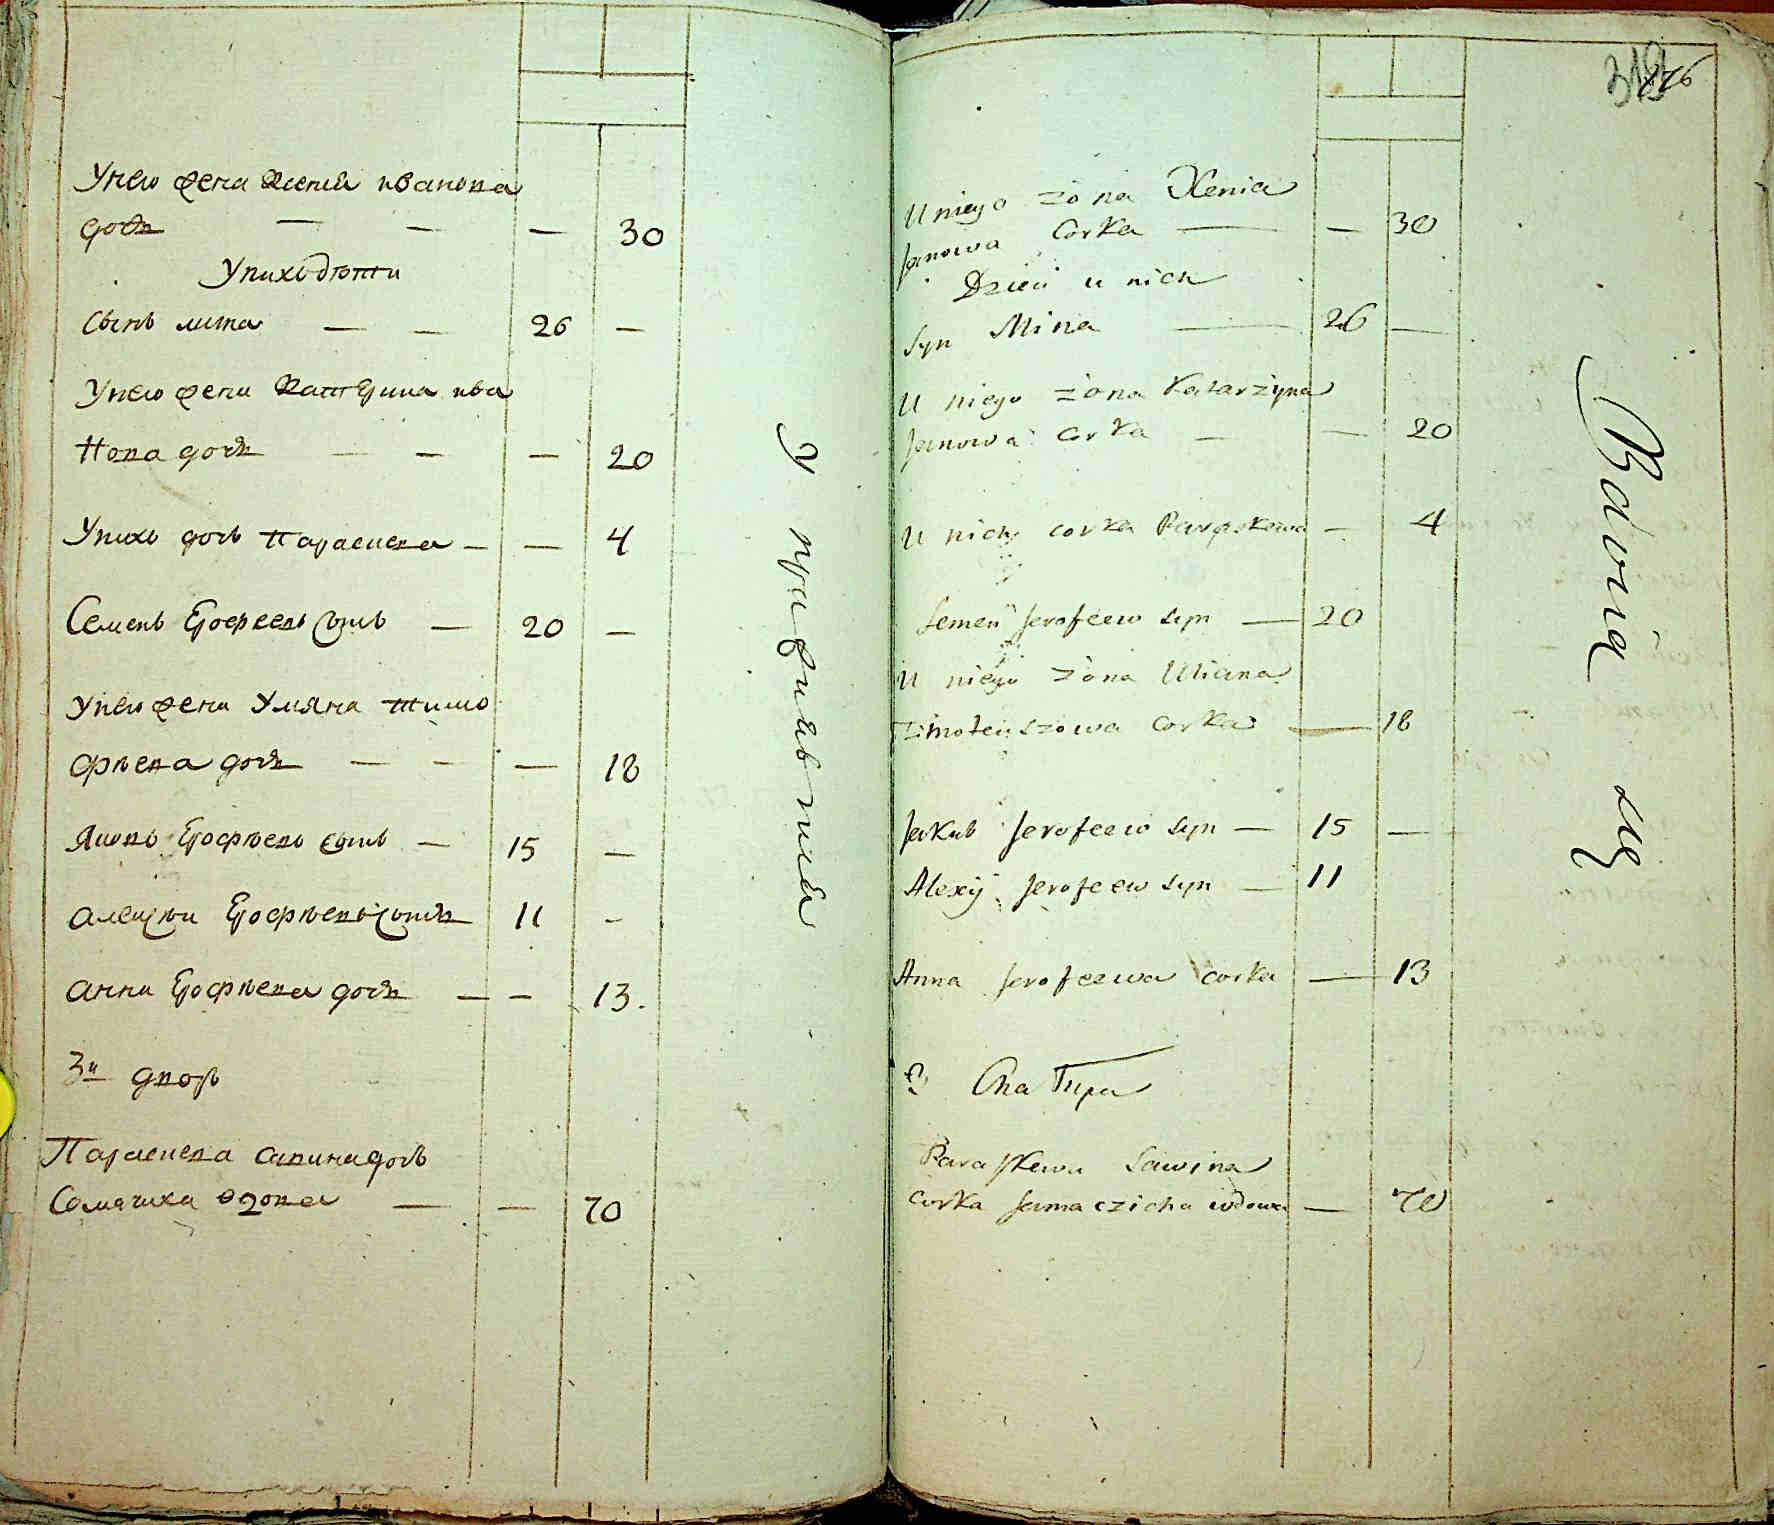 У нево жена Ксения Иванова
дочь — — — 30
У них дети
Сынъ Мина — — 26 —
У нево жена Катерина Ива
нова дочь — — — 20
У нихъ дочь Парасцева — — 4
Семенъ Ерофеевъ сынъ — 20 —
У нево жена Уляна Тимо
фѣева дочь — — — 18
Яковъ Ерофѣевъ сынъ — 15 —
Алексѣй Ерофѣевъ сынъ 11 -
Анна Ерофѣева дочь — — 13.
3й дворъ
Парасцева Савина дочь
вдова — — 70
У
176
U niego zona Xenia
Janowa Corka — — 30
Dzieci u nich
Syn Mina — 26 —
U niego zona Katarzyna
Janowa Corka — — 20
U nich corka Paraskewa — 4
Semen Jerofeew syn — 20
U niego zona Uliana
Timoteuszowa Corka — 18
Jakub Jerofeew syn — 15 —
Alexy Jerofeew syn — 11
Anna Jerofeewa corka — 13
3
Paraskewa Sawina
corka Samaczicha wdowa — 70